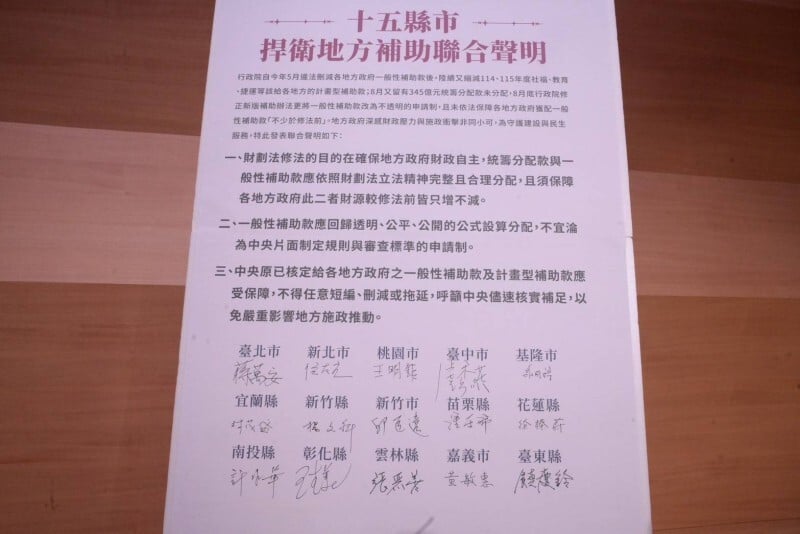 十五縣市
捍衛地方補助聯合聲明
行政院自今年5月違法刪減各地方政府一般性補助款後，陸續又縮減114、115年度社福、教育
、捷運等該給各地方的計畫型補助款；8月又留有345億元統籌分配款未分配，8月底行政院修
正新版補助辦法更將一般性補助款改為不透明的申請制，且未依法保障各地方政府獲配一般
性補助款「不少於修法前」。地方政府深感財政壓力與施政衝擊非同小可，為守護建設與民生
服務，特此發表聯合聲明如下：
一、財劃法修法的目的在確保地方政府財政自主，統籌分配款與一
般性補助款應依照財劃法立法精神完整且合理分配，且須保障
各地方政府此二者財源較修法前皆只增不減。
二、一般性補助款應回歸透明、公平、公開的公式設算分配，不宜淪
為中央片面制定規則與審查標準的申請制。
三、中央原已核定給各地方政府之一般性補助款及計畫型補助款應
受保障，不得任意短編、刪減或拖延，呼籲中央儘速核實補足，以
免嚴重影響地方施政推動。
臺北市 新北市 桃園市 臺中市 基隆市
蔣萬安
宜蘭縣 新竹縣 新竹市 苗栗縣 花蓮縣
南投縣 彰化縣 雲林縣 嘉義市 臺東縣
張麗善 黃敏惠 饒慶鈴